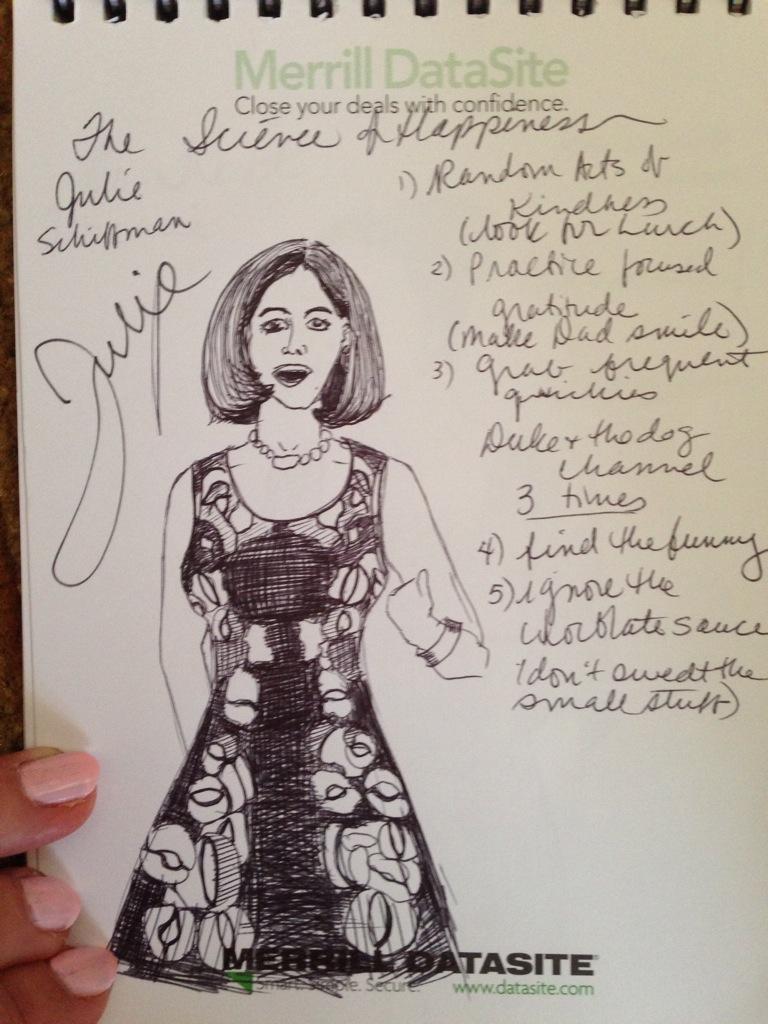 Merrill DataSite
Close your deals with confidence.
The Science of Happiness
Julie
Schiffman
Julie
1) Random Acts of
Kindness
(look for Lunch)
2) Practice focused
gratitude
(make Dad smile)
3) Grab frequent
quickies
Duke + the dog
channel
3 times
4) find the funny
5) ignore the
chocolate sauce
(don't sweat the
small stuff)
MERRILL DATASITE®
Smart. Simple. Secure.
www.datasite.com